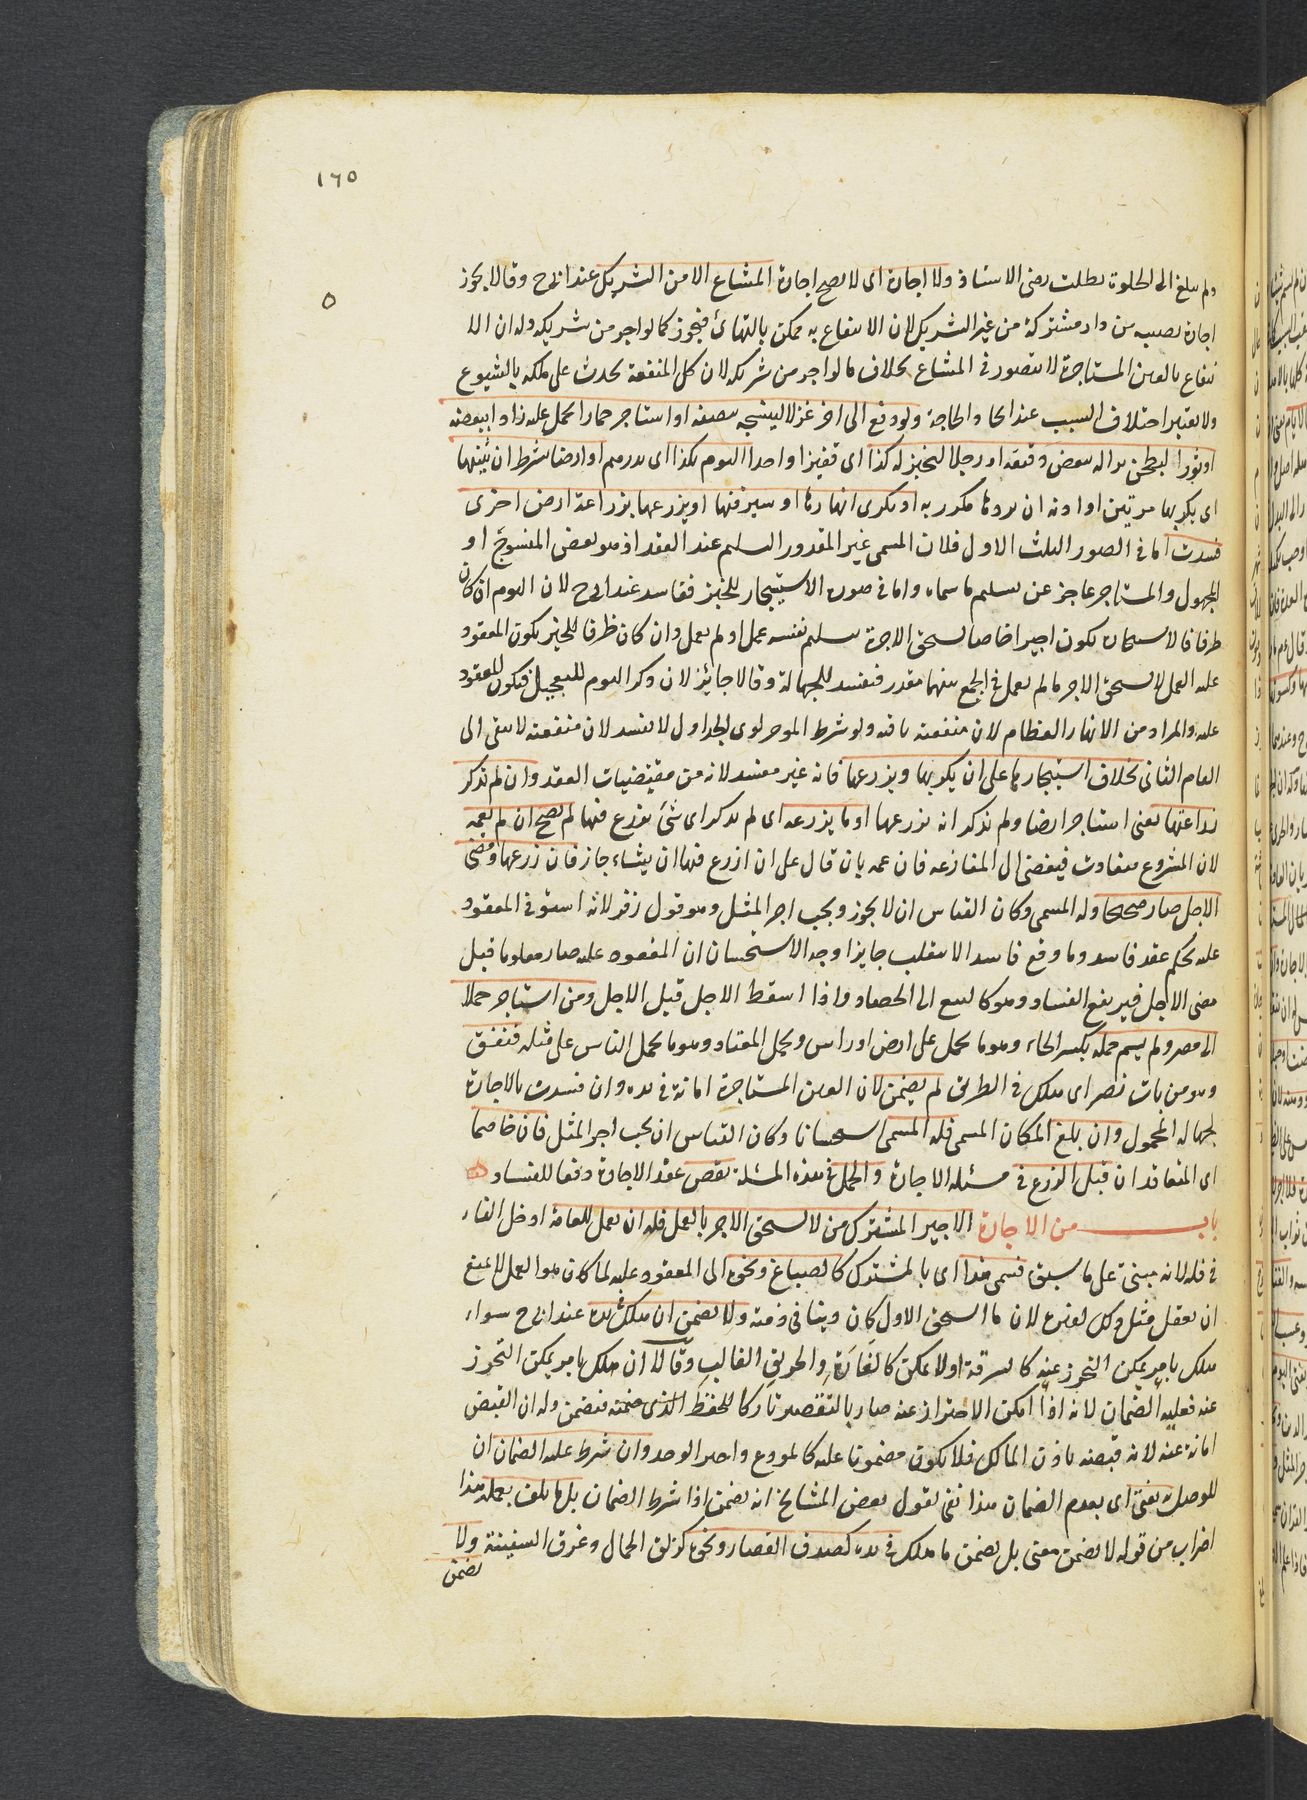 ١٦٥
ولم يبلغ الى الحلوة بطلت رضى الاستاذ ولا اجارة اى لا يصح اجارة المشاع الا من الشريك عند ابى ح وقالا يجوز
اجارة نصيبه من دار مشتركة من غير الشريك لان الانتفاع به ممكن بالتهائ فيجوز كما لو اجر من شريكه وله ان الا
نتفاع بالعين المستاجرة لا يتصور فى المشاع بخلاف ما لو اجر من شريكه لان كل المنفعة يحدث على ملكه بالشيوع
ولا يعتبر اختلاف السبب عند اتحاد الحاجة ولو دفع الى اخر غزلا لينسجه بنصفه او استاجر حمارا ليحمل عليه زادا ببعضه
او ثورا ليطحن برا له ببعض دقيقه او رجلا ليخبز له كذا اى قفيزا واحدا اليوم بكذا اى بدرهم او ارضا بشرط ان يثنيها
اى يكربها مرتين او اراد ان يردها مكروبه او يكرى انهارها او يسرقنها او يزرعها بزراعة ارض اخرى
فسدت اما فى الصور الثلث الاول فلان المسمى غير المقدور التسليم عند العقد اذ هو بعض المنسوج او
المجهول والمستاجر عاجز عن تسليم ما سماه واما فى صورة الاستيجار للخبز ففاسد عند ابى ح لان اليوم ان كان
ظرفا فالاستيجار يكون اجيرا خاصا يستحق الاجرة بتسليم نفسه عمل او لم يعمل وان كان ظرفا للخبز يكون المعقود
عليه العمل لا يستحق الاجر ما لم يعمل فى الجمع بينهما مقدر فيفسد للجهالة وقالا جايز لان ذكر اليوم للتعجيل فيكون المعقود
عليه والمراد من الانهار العظام لان منفعته باقيه ولو شرط الموجر لوى الجداول لا يفسد لان منفعته لا يبقى الى
العام الثانى بخلاف استيجارها على ان يكربها ويزرعها فانه غير مفسد لانه من مقتضيات العقد وان لم يذكر
زراعتها يعنى استاجر ارضا ولم يذكر انه يزرعها او ما يزرعه اى لم يذكر اى شئ يزرع فيها لم يصح ان لم يعمه
لان المزروع متفاوت فيفضى الى المنازعه فان عمه بان قال على ان ازرع فيها ان يشاء جاز فان زرعها ومضى
الاجل صار صحيحا وله المسمى وكان القياس ان لا يجوز ويجب اجر المثل وهو قول زفر لانه استوفى المعقود
عليه بحكم عقد فاسد وما وقع فاسدا لا ينقلب جايزا وجه الاستحسان ان المعقود عليه صار معلوما قبل
مضى الاجل فيرتفع الفساد وهو كالبيع الى الحصاد واذا اسقط الاجل قبل الاجل ومن استاجر حملا
الى مصر ولم يسم حمله بكسر الحاء وهو ما يحمل على ارض او راس وحمل المعتاد وهو ما يحمل الناس على مثله فنفق
وهو من بات نصر اى هلك فى الطريق لم يضمن لان العين المستاجرة امانة فى يده وان فسدت بالاجارة
لجهالة المحمول وان بلغ المكان المسمى فله المسمى استحسانا وكان القياس ان يجب اجر المثل فان خاصما
اى المتعاقدان قبل الزرع فى مسئلة الاجارة والحمل فى هذه المسئلة نقض عقد الاجارة دفعا للفساد
باب من الاجارة الاجير المشترك من لا يستحق الاجر بالعمل فله ان يعمل للعامة ادخل الفاء
فى فله لانه مبنى على ما سبق فسمى هذا اى بالمشترك كالصباغ ونحوه الى المعقود عليه لما كان هو العمل لا يمتنع
ان يعقل مثل ذلك لغيره لان ما استحق الاول كان دينا فى ذمته ولا يضمن ان هلك فى يده عند ابى ح سواء
هلك بامر يمكن التحرز عنه كالسرقة او لا يمكن كالغارة والحريق الغالب وقالا ان هلك بامر يمكن التحرز
عنه فعليه الضمان لانه اذا امكن الاحتراز عنه صار بالتقصير تاركا للحفظ الذى ضمنه فيضمن وله ان القبض
امانة عنه لانه قبضه باذن المالك فلا يكون مضمونا عليه كالمودع واجير الوحد وان شرط عليه الضمان ان
للوصل يفتى اى بعدم الضمان هذا نفى لقول بعض المشايخ انه يضمن اذا شرط الضمان بل ما تلف بعمله هذا
اضراب من قوله لا يضمن معنى بل يضمن ما هلك فى يده كصدف القصار ونحوه كزلق الحمال وغرق السفينة ولا
يضمن